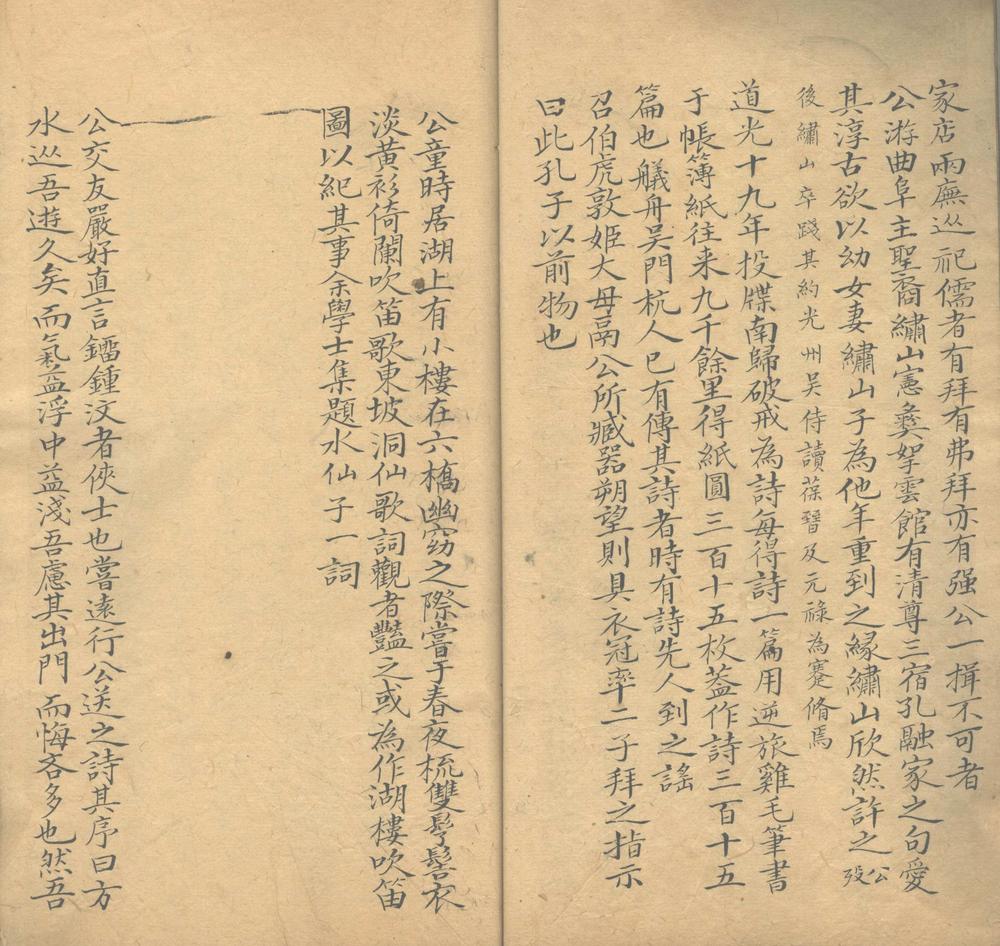 家店兩廡巡祀儒者有拜有弗拜亦有强公一揖不可者
公游曲阜主聖裔繡山憲彝挐雲館有清尊三宿孔融家之句愛
其淳古欲以幼女妻繡山子為他年重到之緣繡山欣然許之公歿
後繡山卒踐其約光州吳侍讀葆晉及元祿為蹇脩焉
道光十九年投牒南歸破戒為詩每得詩一篇用逆旅雞毛筆書
于帳簿紙往来九千餘里得紙圓三百十五枚蓋作詩三百十五
篇也艤舟吳門杭人已有傳其詩者時有詩先人到之謠
召伯虎敦姬大母鬲公所臧器朔望則具衣冠率二子拜之指示
曰此孔子以前物也
公童時居湖上有小樓在六橋幽窈之際嘗于春夜梳雙丫髻衣
淡黄衫倚闌吹笛歌東坡洞仙歌詞觀者豔之或為作湖樓吹笛
圖以紀其事余學士集題水仙子一詞
公交友嚴好直言鐂鍾汶者俠士也嘗遠行公送之詩其序曰方
水巡吾遊久矣而氣益浮中益淺吾慮其出門而悔吝多也然吾